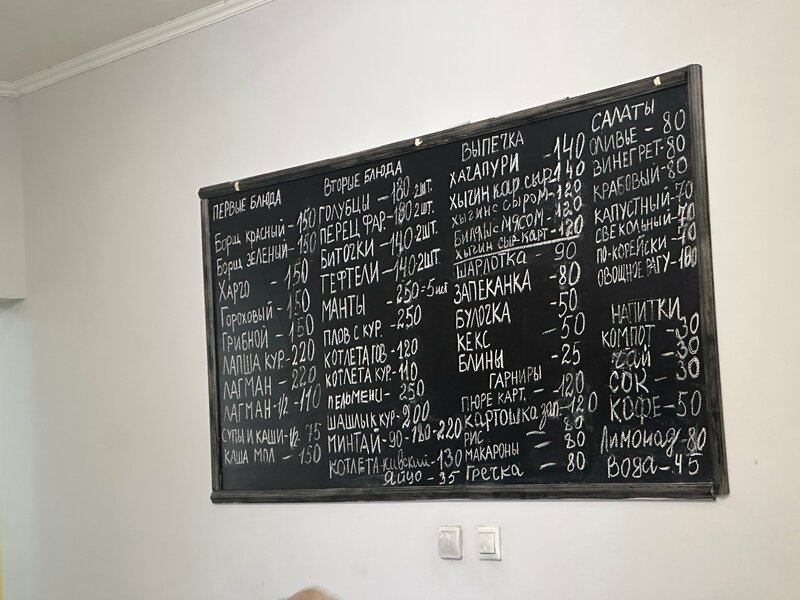 ПЕРВЫЕ БЛЮДА
БОРЩ КРАСНЫЙ - 150
БОРЩ ЗЕЛЕНЫЙ - 150
ХАРЧО - 150
ГОРОХОВЫЙ - 150
ГРИБНОЙ - 150
ЛАПША КУР. - 220
ЛАГМАН - 220
ЛАГМАН - 1/2 - 110
СУПЫ И КАШИ - 1/2 75
КАША МОЛ - 150
ВТОРЫЕ БЛЮДА
ГОЛУБЦЫ - 180 2ШТ.
ПЕРЕЦ ФАР. - 180 2ШТ.
БИТОЧКИ - 140 2ШТ.
ТЕФТЕЛИ - 140 2ШТ
МАНТЫ - 250 = 5 шт
ПЛОВ С КУР. - 250
КОТЛЕТА ГОВ - 120
КОТЛЕТА КУР. - 110
ПЕЛЬМЕНИ - 250
ШАШЛЫК КУР - 200
МИНТАЙ - 90 - 180 - 220
КОТЛЕТА - КИЕВСКИЙ - 130
ЯЙЦО - 35
ВЫПЕЧКА
ХАЧАПУРИ - 140
ХЫЧИН КАР. СЫР - 140
ХЫЧИН С СЫРОМ - 120
БИЛЯШ С МЯСОМ - 120
ХЫЧИН СЫР-КАРТ - 120
ШАРЛОТКА - 90
ЗАПЕКАНКА - 80
БУЛОЧКА - 50
КЕКС - 50
БЛИНЫ - 25
ГАРНИРЫ
ПЮРЕ КАРТ. - 120
КАРТОШКА ЗАП - 120
РИС - 80
МАКАРОНЫ - 80
ГРЕЧКА - 80
САЛАТЫ
ОЛИВЬЕ - 80
ВИНЕГРЕТ - 80
КРАБОВЫЙ - 80
КАПУСТНЫЙ - 70
СВЕКОЛЬНЫЙ - 70
ПО-КОРЕЙСКИ - 70
ОВОЩНОЕ РАГУ - 100
НАПИТКИ
КОМПОТ - 30
ЧАЙ - 30
СОК - 30
КОФЕ - 50
Лимонад - 80
Вода - 45